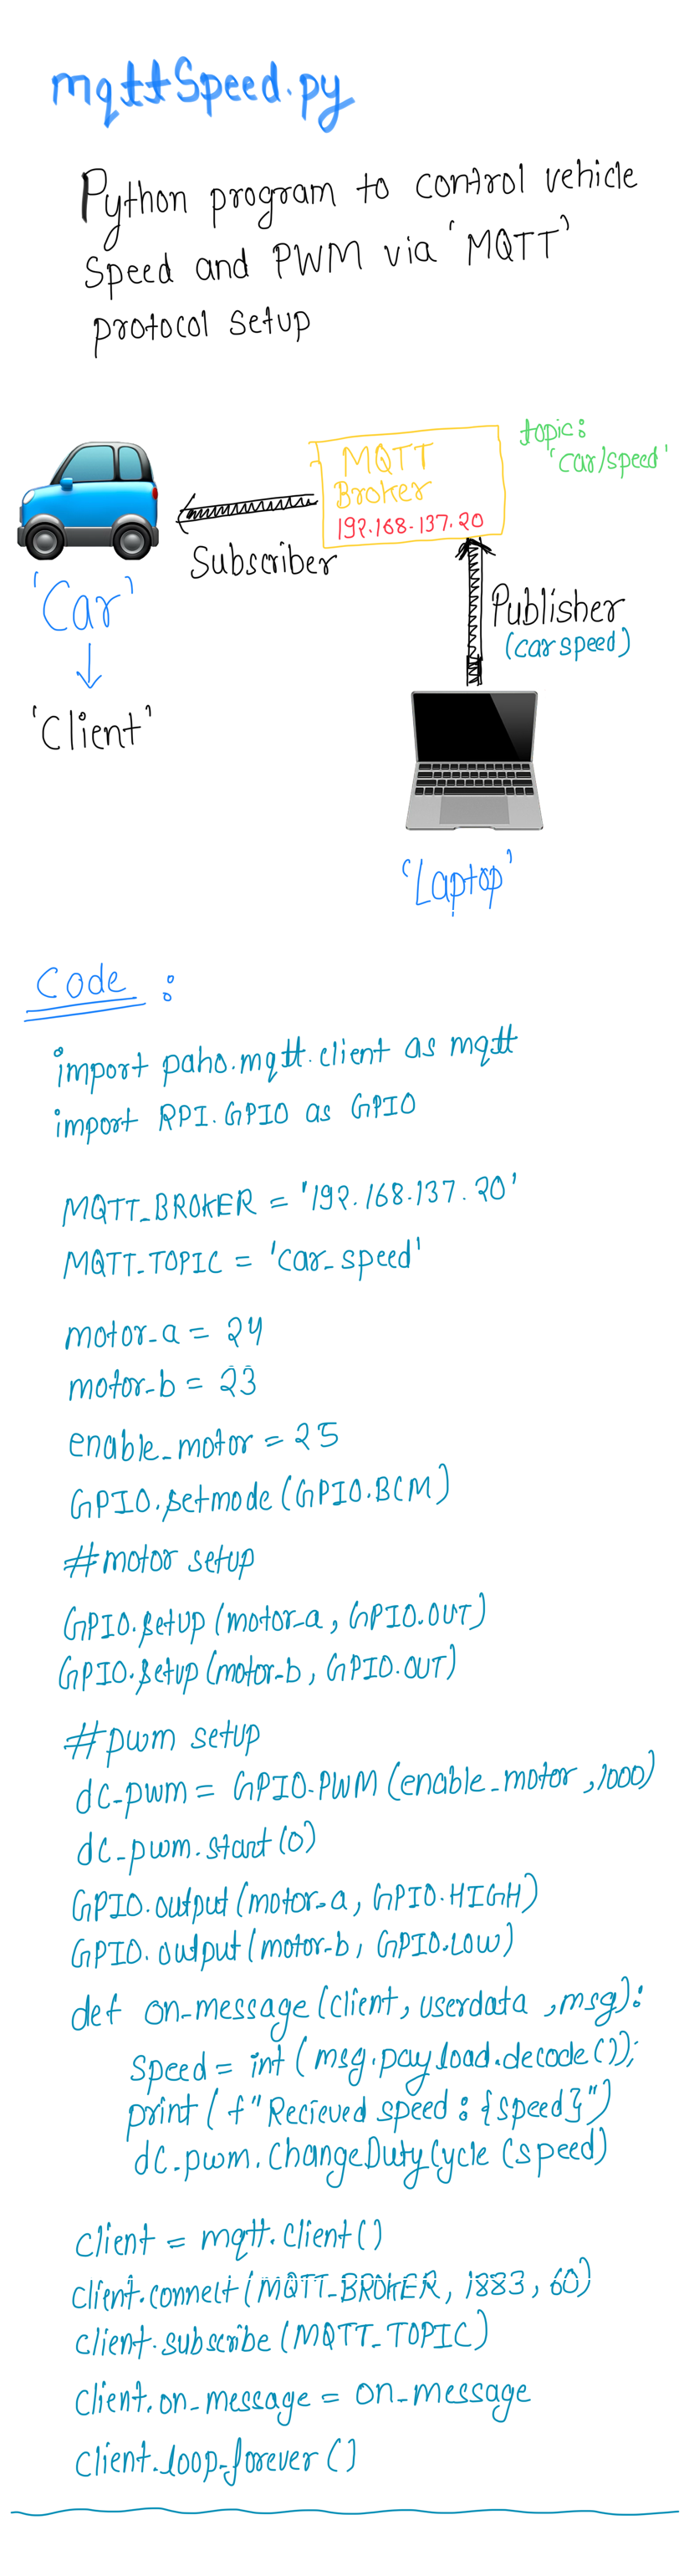 mqttSpeed.py
Python program to control vehicle
Speed and PWM via 'MQTT'
protocol setup
topic:
'car/speed'
MQTT
Broker
192.168.137.20
Subscriber
'Car'
Publisher
(car speed)
'Client'
'Laptop'
Code :
import paho.mqtt.client as mqtt
import RPI.GPIO as GPIO
MQTT_BROKER = '192.168.137.20'
MQTT_TOPIC = 'car_speed'
motor_a = 24
motor_b = 23
enable_motor = 25
GPIO.setmode (GPIO.BCM)
#motor setup
GPIO.setup (motor_a, GPIO.OUT)
GPIO.setup (motor_b, GPIO.OUT)
#pwm setup
dc_pwm = GPIO.PWM (enable_motor, 1000)
dc_pwm.start (0)
GPIO.output (motor_a, GPIO.HIGH)
GPIO.output (motor_b, GPIO.LOW)
def on_message (client, userdata, msg):
Speed = int (msg.payload.decode());
print (f"Recieved speed: {speed}")
dc_pwm.ChangeDutyCycle (speed)
client = mqtt.Client()
client.connect (MQTT_BROKER, 1883, 60)
client.subscribe (MQTT_TOPIC)
client.on_message = on_message
client.loop_forever ()